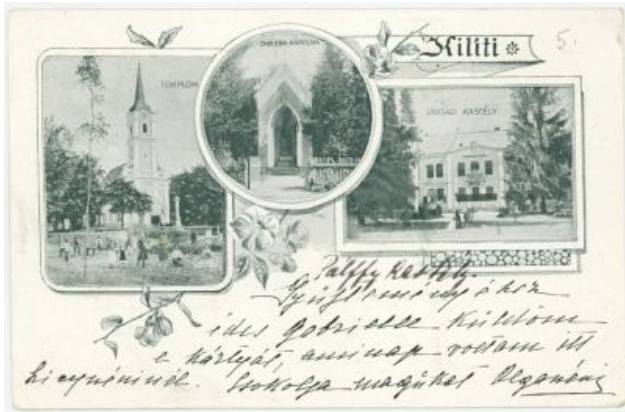 Kiliti
5.
TEMPLOM
CHOLERA KÁPOLNA
URASÁGI KASTÉLY
Pálffy kastély.
Gyűjteményéhez
édes Gabriella küldöm
e kártyát, aminap voltam itt
néninél. Csókolja magukat Olganéni